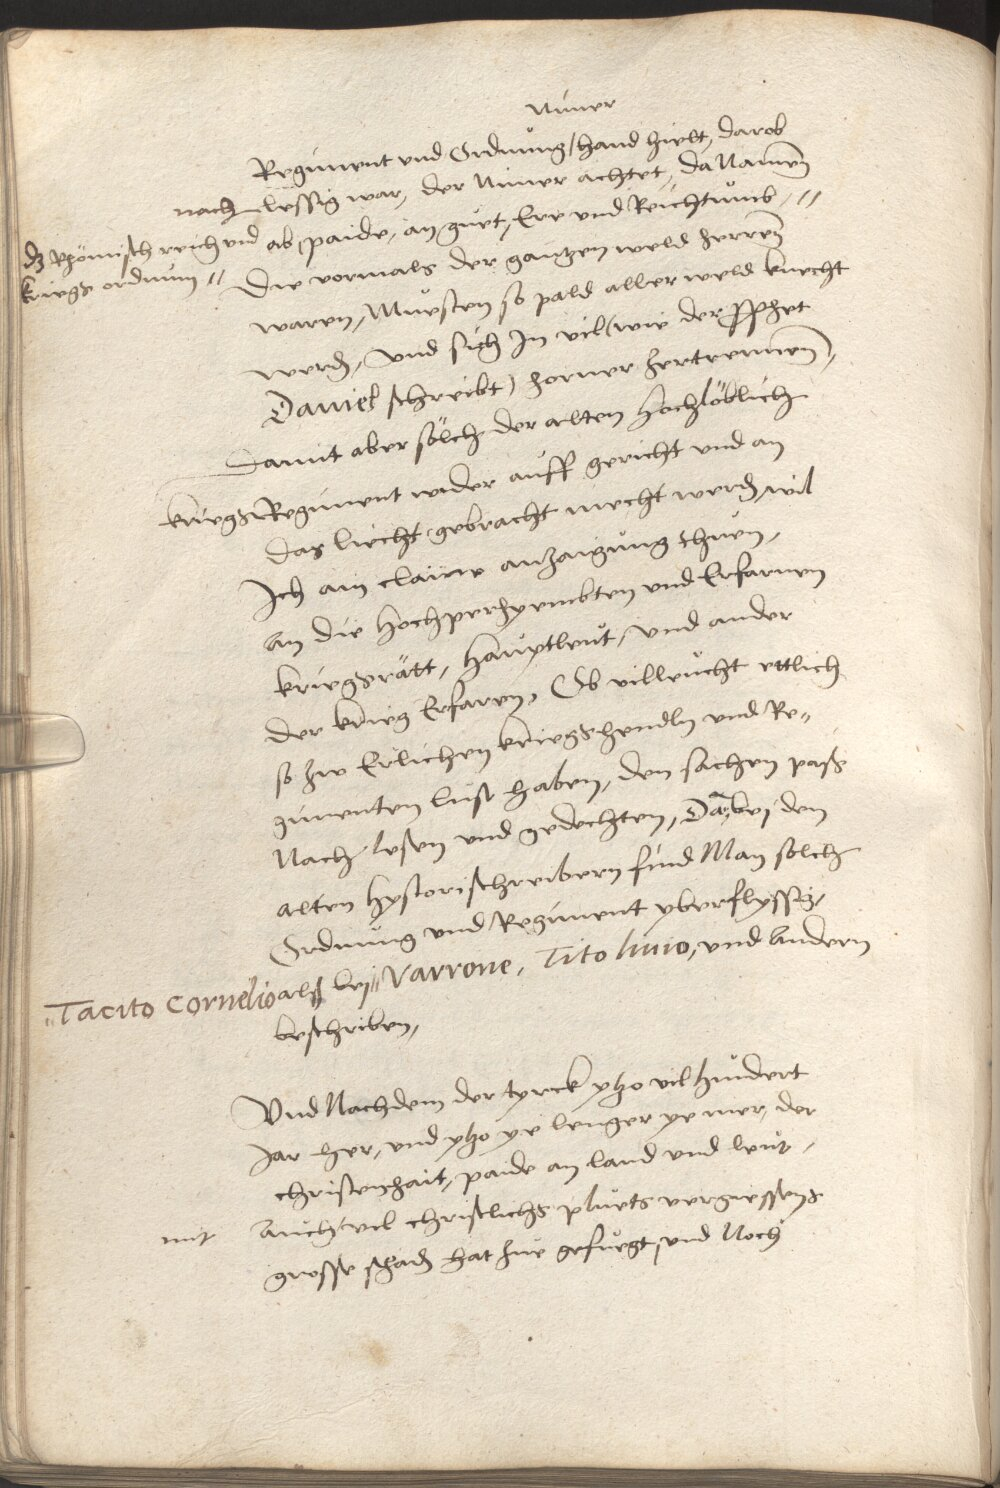 Nimer
Regiment und Ordnung/ hand hielt, darob
nach lessig war, der Nimer achtet, da Namen
dz Rhömisch reich und ab paide, an guet, Eer und Reichtumb, //
kriegs ordnung // Die vormals der gantzen weld herren
waren, Muesten so pald aller weld knecht
werden, Und sich In vil (wie der
Daniel schreibt) horner zertrennen,
Damit aber sölch der alten hochlöblich
kriegs Regiment wider auff gericht und an
das liecht gebracht mecht werden, wil
Ich ain claine anzaigung thuen,
An die hochperhyembten und Erfarnen
kriegsrätt, Hauptleut, und ander
der krieg Erfaren, Ob villeucht ettlich
so zw Erlichen kriegshendln und Re-
gimenten lust haben, den sachen pass
Nach lesen und gedechten, Dan bej den
alten hystorischreibern find Man solch
Ordnung und Regiment yberflyssig,
"Tacito Cornelio als bej " Varrone, Tito liuio, und Andern
beschriben,
Und Nachdem der tyrck yzo vil hundert
Jar her, und yzo ye lenger ye mer, der
christenhait, paide an land und leut,
mit Auch vil christlichs pluets vergiessens
grosse schaden hat zue gefuegt, und Noch